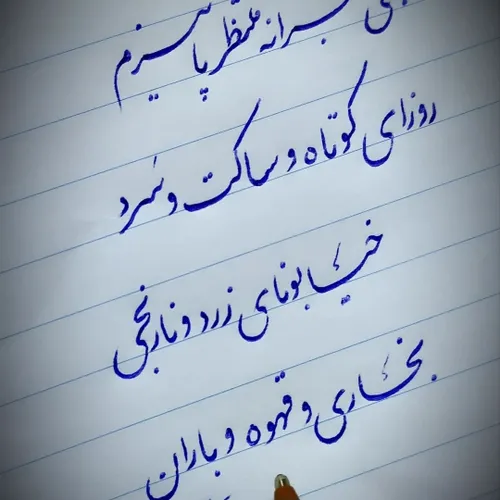 بی صبرانه منتظر پاییزم
روزای کوتاه و ساکت و سرد
خیابونای زرد و نارنجی
بخاری و قهوه و باران